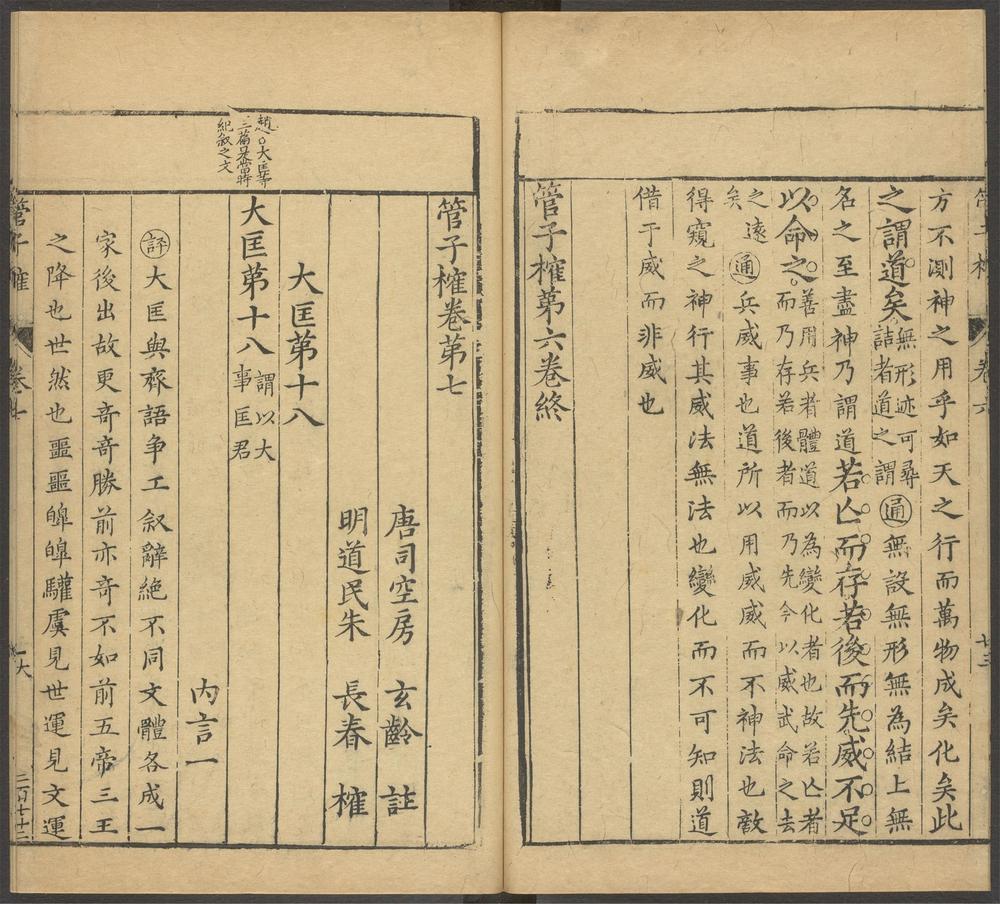 方不測神之用乎如天之行而萬物成矣化矣此
之謂道矣無形迹可尋詰者道之謂通無設無形無為結上無
名之至盡神乃謂道若亾而存若後而先威不足
以命之善用兵者體道以為變化者也故若亾者而乃存若後者而乃先今以威武命之去
之遠矣通兵威事也道所以用威威而不神法也敵
得窺之神行其威法無法也變化而不可知則道
借于威而非威也
管子榷第六卷終
管子榷卷第七
唐司空房 玄齡 註
明道民朱 長春 榷
大匡第十八
大匡第十八謂以大事匡君
內言一
評大匡與齊語争工叙辭絶不同文體各成一
家後出故更竒竒勝前亦竒不如前五帝三王
之降也世然也噩噩皥皥驩虞見世運見文運
趙。大匡等
三篇是當時
紀叙之文
管子榷
二百七十二